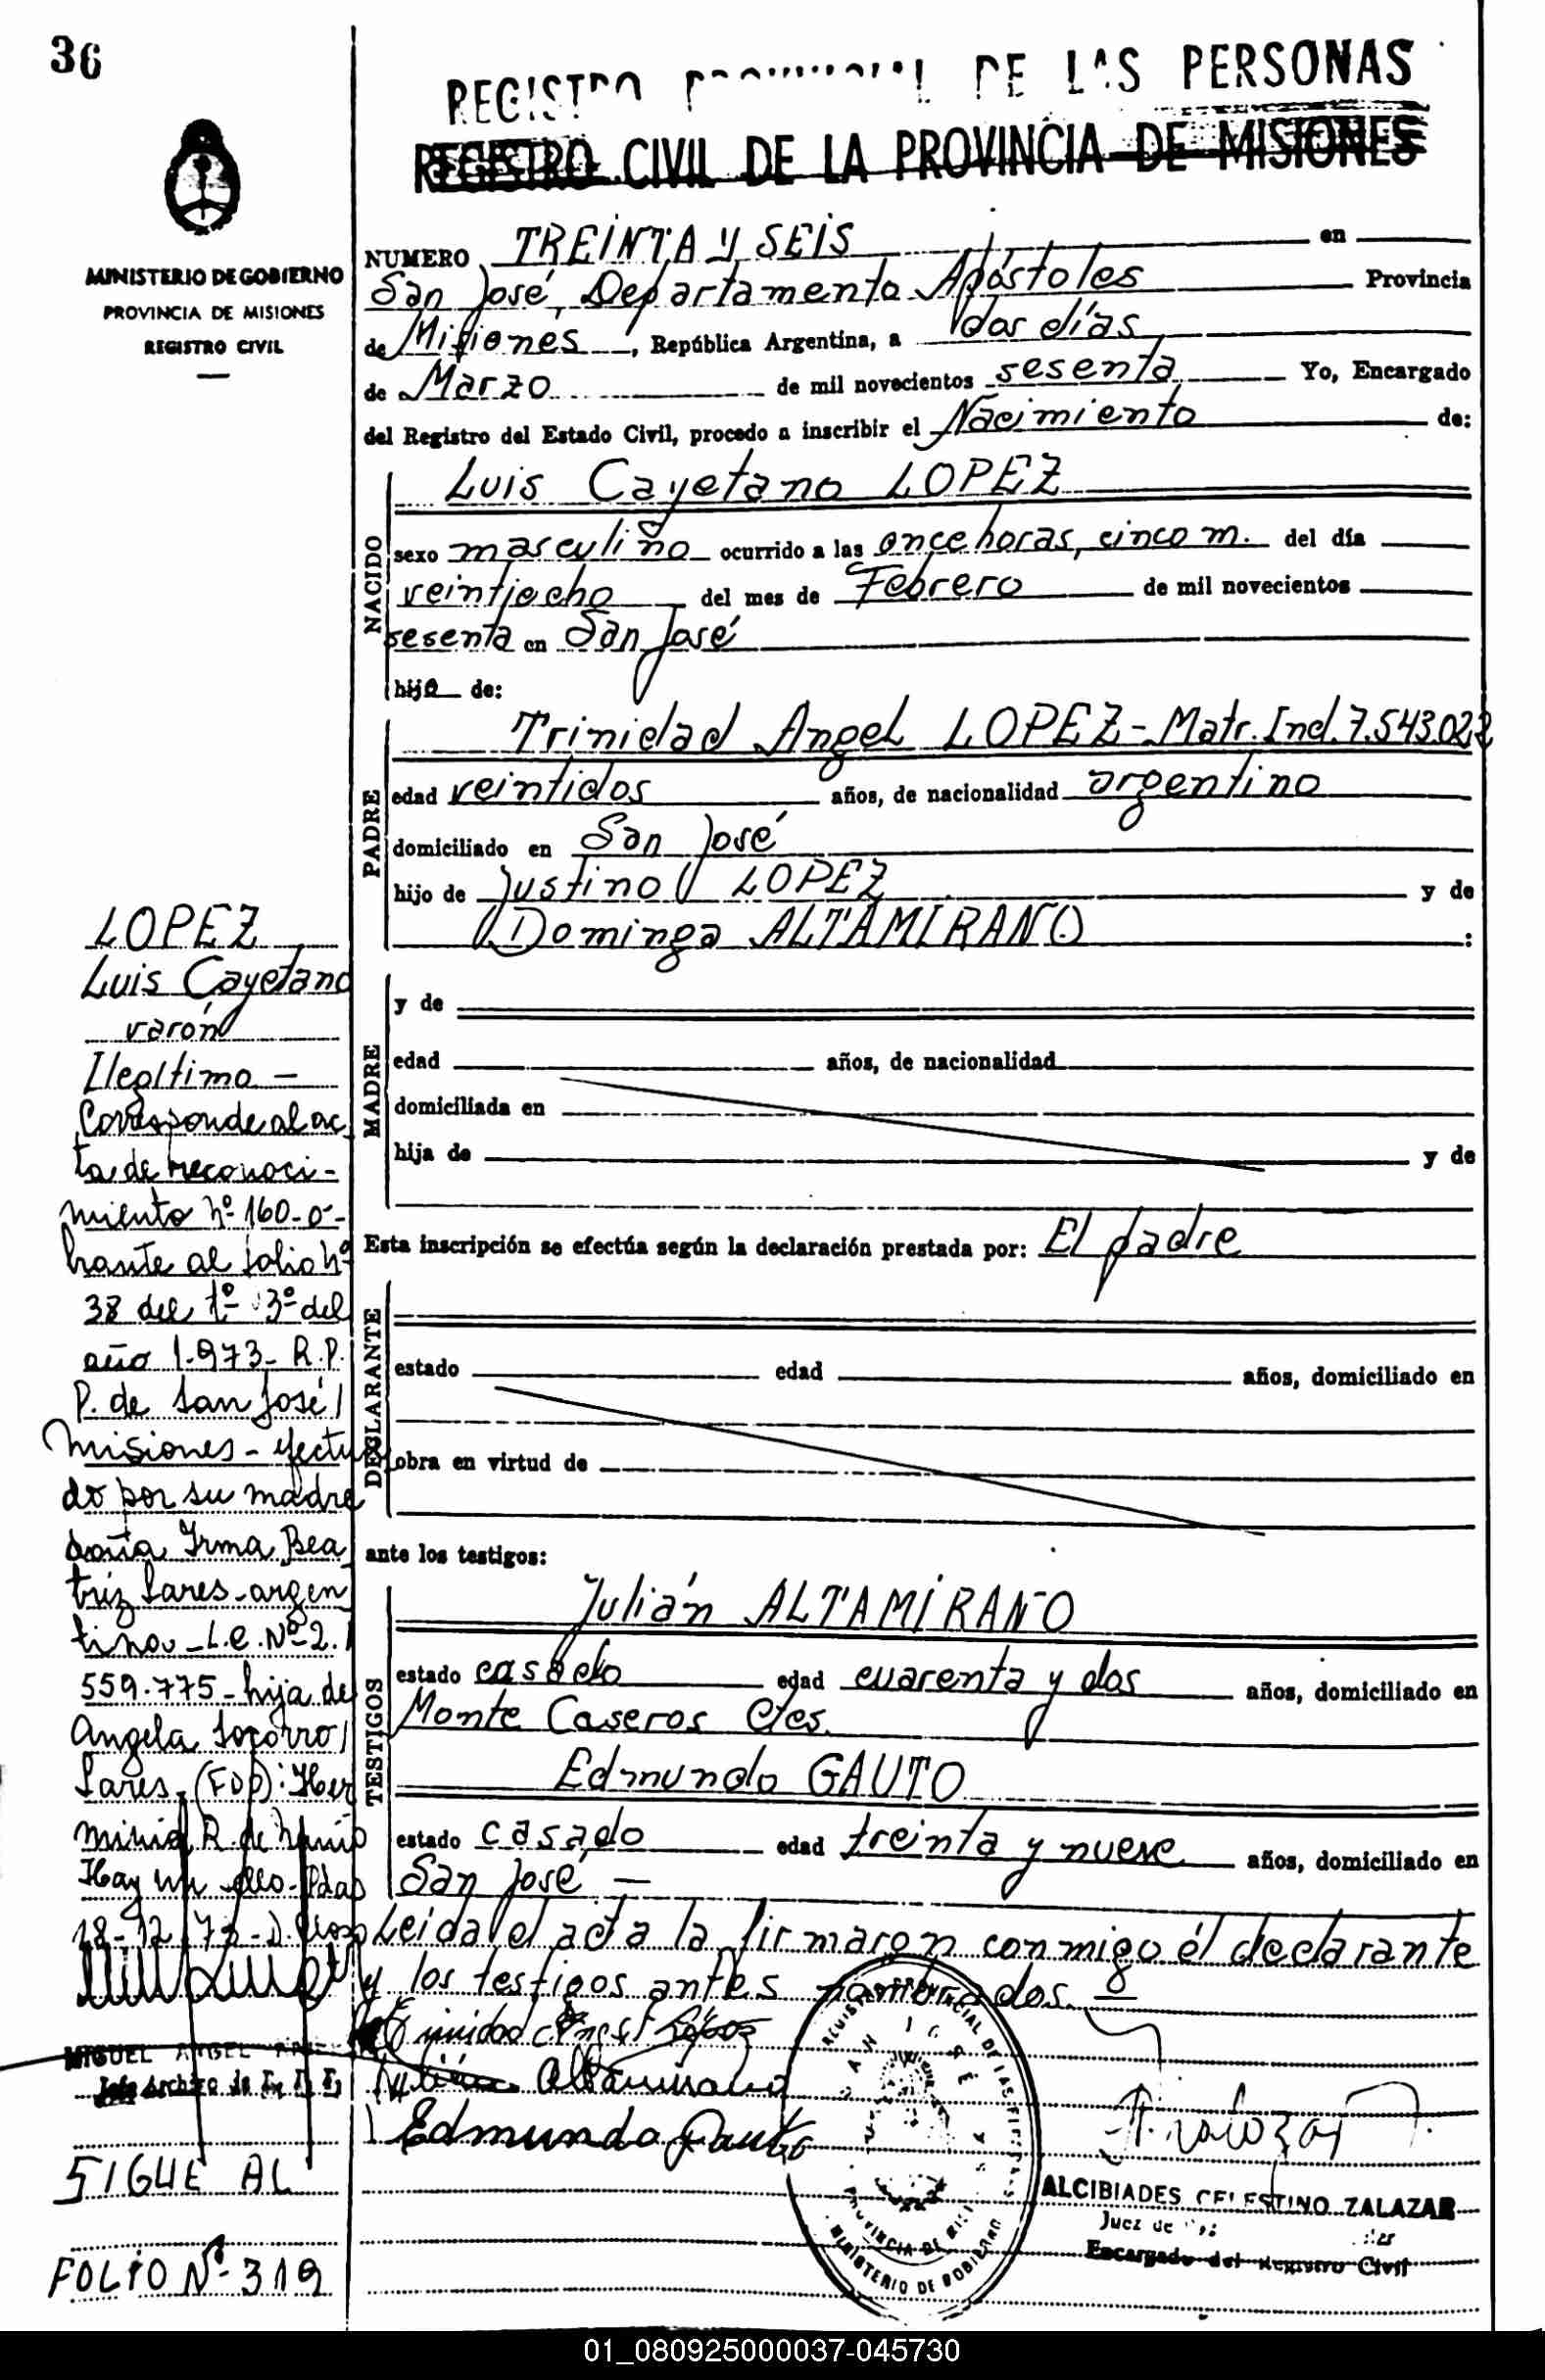 36
REGISTRO PROVINCIAL DE LAS PERSONAS
REGISTRO CIVIL DE LA PROVINCIA DE MISIONES
MINISTERIO DE GOBIERNO
PROVINCIA DE MISIONES
REGISTRO CIVIL
NUMERO TREINTA Y SEIS en
San José, Departamento Apóstoles Provincia
de Misiones, República Argentina, a dos días
de Marzo de mil novecientos sesenta Yo, Encargado
del Registro del Estado Civil, procedo a inscribir el Nacimiento de:
NACIDO
Luis Cayetano LOPEZ
sexo masculino ocurrido a las once horas, cinco m. del día
veintiocho del mes de Febrero de mil novecientos
sesenta en San José
hijo de:
PADRE
Trinidad Angel LOPEZ - Matr. Ind. 7.543.022
edad veintidos años, de nacionalidad argentino
domiciliado en San José
hijo de Justino LOPEZ y de
Dominga ALTAMIRANO :
MADRE
y de
edad años, de nacionalidad
domiciliada en
hija de y de
Esta inscripción se efectúa según la declaración prestada por: El padre
DECLARANTE
estado edad años, domiciliado en
obra en virtud de
ante los testigos:
TESTIGOS
Julián ALTAMIRANO
estado casado edad cuarenta y dos años, domiciliado en
Monte Caseros Ctes.
Edmundo GAUTO
estado casado edad treinta y nueve años, domiciliado en
San José -
Leida el acta la firmaron conmigo él declarante
y los testigos antes nombrados. -
Trinidad Angel Lopez
Julián Altamirano
Edmundo Gauto
REGISTRO PROVINCIAL DE LAS PERSONAS
SAN JOSÉ
PROVINCIA DE MISIONES
MINISTERIO DE GOBIERNO
ALCIBIADES CELESTINO ZALAZAR
Juez de Paz
Encargado del Registro Civil
LOPEZ
Luis Cayetano
varón
Ilegítimo -
Corresponde al ac
ta de reconoci-
miento nº 160-o-
brante al folio nº
38 del tº 3º del
año 1.973- R.P.
P. de San José/
Misiones - efectua
do por su madre
doña Irma Bea
triz Lares - argen
tina - L.C. Nº 2.
559.775 - hija de
Angela Socorro/
Lares. (FDO): Her
minia R. de
Hay un sello - Pdas
18-12-73-
MIGUEL ANGEL
Jefe Archivo
SIGUE AL
FOLIO Nº 319
01_080925000037-045730